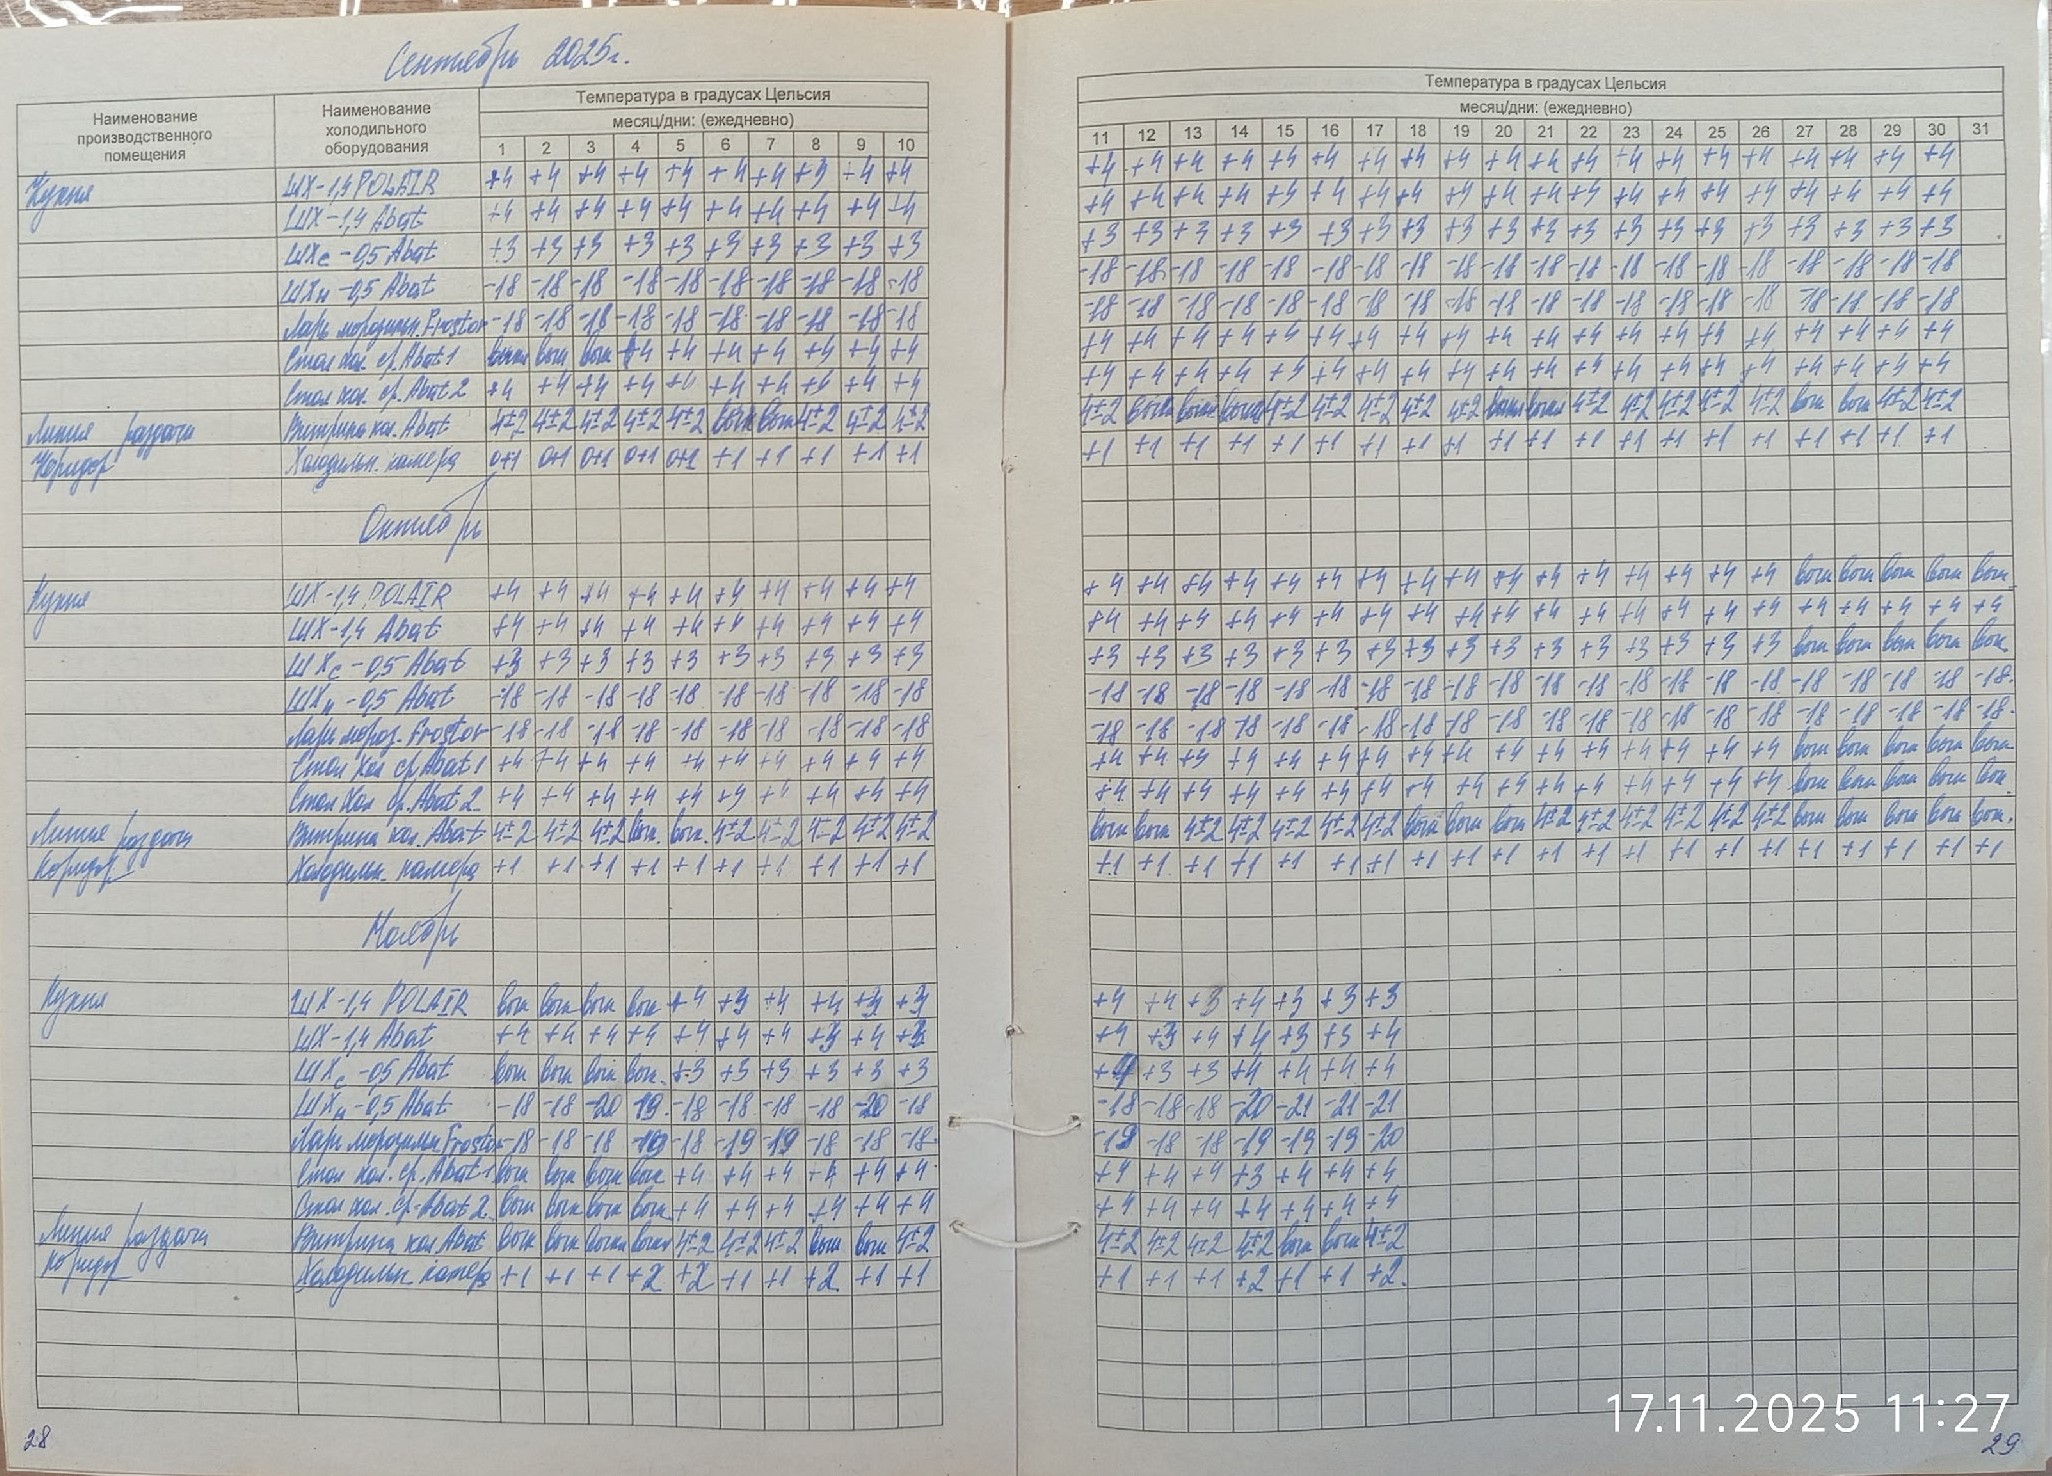 Сентябрь 2025г.
Наименование производственного помещения Наименование холодильного оборудования Температура в градусах Цельсия
месяц/дни: (ежедневно)
1 2 3 4 5 6 7 8 9 10
Температура в градусах Цельсия
месяц/дни: (ежедневно)
11 12 13 14 15 16 17 18 19 20 21 22 23 24 25 26 27 28 29 30 31
Кухня ШХ-1,4 POLAIR +4 +4 +4 +4 +4 +4 +4 +3 +4 +4 +4 +4 +4 +4 +4 +4 +4 +4 +4 +4 +4 +4 +4 +4 +4 +4 +4 +4 +4 +4
ШХ-1,4 Abat +4 +4 +4 +4 +4 +4 +4 +4 +4 +4 +4 +4 +4 +4 +4 +4 +4 +4 +4 +4 +4 +4 +4 +4 +4 +4 +4 +4 +4 +4
ШХс-0,5 Abat +3 +3 +3 +3 +3 +3 +3 +3 +3 +3 +3 +3 +3 +3 +3 +3 +3 +3 +3 +3 +3 +3 +3 +3 +3 +3 +3 +3 +3 +3
ШХн-0,5 Abat -18 -18 -18 -18 -18 -18 -18 -18 -18 -18 -18 -18 -18 -18 -18 -18 -18 -18 -18 -18 -18 -18 -18 -18 -18 -18 -18 -18 -18 -18
Ларь морозильн. Frostor -18 -18 -18 -18 -18 -18 -18 -18 -18 -18 -18 -18 -18 -18 -18 -18 -18 -18 -18 -18 -18 -18 -18 -18 -18 -18 -18 -18 -18 -18
Стол хол. ср. Abat 1 выкл выкл выкл +4 +4 +4 +4 +4 +4 +4 +4 +4 +4 +4 +4 +4 +4 +4 +4 +4 +4 +4 +4 +4 +4 +4 +4 +4 +4 +4
Стол хол. ср. Abat 2 +4 +4 +4 +4 +4 +4 +4 +4 +4 +4 +4 +4 +4 +4 +4 +4 +4 +4 +4 +4 +4 +4 +4 +4 +4 +4 +4 +4 +4 +4
Линия раздачи Витрина хол. Abat 4±2 4±2 4±2 4±2 4±2 выкл выкл 4±2 4±2 4±2 4±2 выкл выкл выкл 4±2 4±2 4±2 4±2 4±2 выкл выкл 4±2 4±2 4±2 4±2 4±2 выкл выкл 4±2 4±2
Коридор Холодильн. камера 0+1 0+1 0+1 0+1 0+1 +1 +1 +1 +1 +1 +1 +1 +1 +1 +1 +1 +1 +1 +1 +1 +1 +1 +1 +1 +1 +1 +1 +1 +1 +1
Октябрь
Кухня ШХ-1,4 POLAIR +4 +4 +4 +4 +4 +4 +4 +4 +4 +4 +4 +4 +4 +4 +4 +4 +4 +4 +4 +4 +4 +4 +4 +4 +4 +4 выкл выкл выкл выкл выкл
ШХ-1,4 Abat +4 +4 +4 +4 +4 +4 +4 +4 +4 +4 +4 +4 +4 +4 +4 +4 +4 +4 +4 +4 +4 +4 +4 +4 +4 +4 +4 +4 +4 +4 +4
ШХс-0,5 Abat +3 +3 +3 +3 +3 +3 +3 +3 +3 +3 +3 +3 +3 +3 +3 +3 +3 +3 +3 +3 +3 +3 +3 +3 +3 +3 выкл выкл выкл выкл выкл
ШХн-0,5 Abat -18 -18 -18 -18 -18 -18 -18 -18 -18 -18 -18 -18 -18 -18 -18 -18 -18 -18 -18 -18 -18 -18 -18 -18 -18 -18 -18 -18 -18 -18 -18
Ларь мороз. Frostor -18 -18 -18 -18 -18 -18 -18 -18 -18 -18 -18 -18 -18 -18 -18 -18 -18 -18 -18 -18 -18 -18 -18 -18 -18 -18 -18 -18 -18 -18 -18
Стол хол ср Abat 1 +4 +4 +4 +4 +4 +4 +4 +4 +4 +4 +4 +4 +4 +4 +4 +4 +4 +4 +4 +4 +4 +4 +4 +4 +4 +4 выкл выкл выкл выкл выкл
Стол Хол ср. Abat 2 +4 +4 +4 +4 +4 +4 +4 +4 +4 +4 +4 +4 +4 +4 +4 +4 +4 +4 +4 +4 +4 +4 +4 +4 +4 +4 выкл выкл выкл выкл выкл
Линия раздачи Витрина хол. Abat 4±2 4±2 4±2 выкл. выкл. 4±2 4±2 4±2 4±2 4±2 выкл выкл 4±2 4±2 4±2 4±2 4±2 выкл выкл выкл 4±2 4±2 4±2 4±2 4±2 4±2 выкл выкл выкл выкл выкл.
Коридор Холодильн. камера +1 +1 +1 +1 +1 +1 +1 +1 +1 +1 +1 +1 +1 +1 +1 +1 +1 +1 +1 +1 +1 +1 +1 +1 +1 +1 +1 +1 +1 +1 +1
Ноябрь
Кухня ШХ-1,4 POLAIR выкл выкл выкл выкл +4 +3 +4 +4 +3 +3 +4 +4 +3 +4 +3 +3 +3
ШХ-1,4 Abat +4 +4 +4 +4 +4 +4 +4 +3 +4 +4 +3 +4 +4 +3 +3 +4
ШХс-05 Abat выкл выкл выкл выкл. +3 +3 +3 +3 +3 +3 +4 +3 +3 +4 +4 +4 +4
ШХн-0,5 Abat -18 -18 -20 -19 -18 -18 -18 -18 -20 -18 -18 -18 -18 -20 -21 -21 -21
Ларь морозильн Frostor -18 -18 -18 -19 -18 -19 -19 -18 -18 -18 -18 -18 -19 -19 -19 -20
Стол хол. ср. Abat 1 выкл выкл выкл выкл +4 +4 +4 +4 +4 +4 +4 +4 +4 +3 +4 +4 +4
Стол хол. ср. Abat 2 выкл выкл выкл выкл +4 +4 +4 +4 +4 +4 +4 +4 +4 +4 +4 +4 +4
Линия раздачи Витрина хол Abat выкл выкл выкл выкл 4±2 4±2 4±2 выкл выкл 4±2 4±2 4±2 4±2 4±2 выкл выкл 4±2
Коридор Холодильн. камера +1 +1 +1 +2 +2 +1 +1 +2 +1 +1 +1 +1 +1 +2 +1 +1 +2.
28
29
17.11.2025 11:27